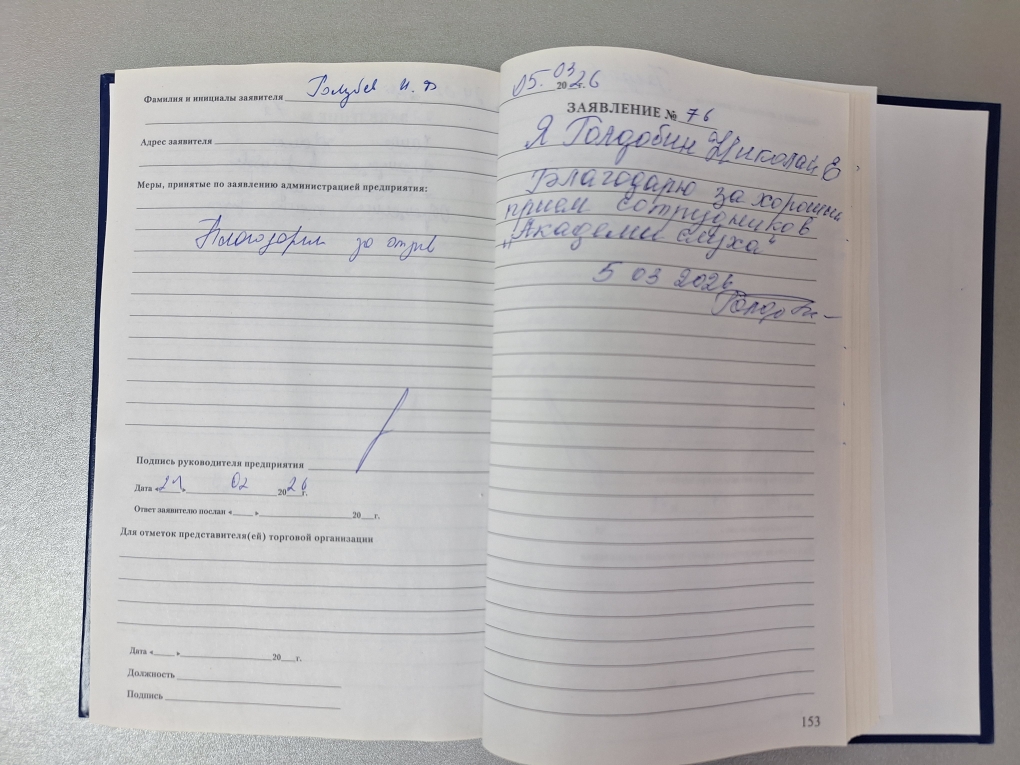 Фамилия и инициалы заявителя Голубев И. Ф
Адрес заявителя
Меры, принятые по заявлению администрацией предприятия:
Благодарим за отзыв
Подпись руководителя предприятия
Дата «21» 02 2026 г.
Ответ заявителю послан «___» 20__г.
Для отметок представителя(ей) торговой организации
Дата «___» 20__г.
Должность
Подпись
05. 03 2026 г.
ЗАЯВЛЕНИЕ № 76
Я Голдобин Николай Е
Благодарю за хороший
прием сотрудников
„Академии слуха“
5 03 2026
153